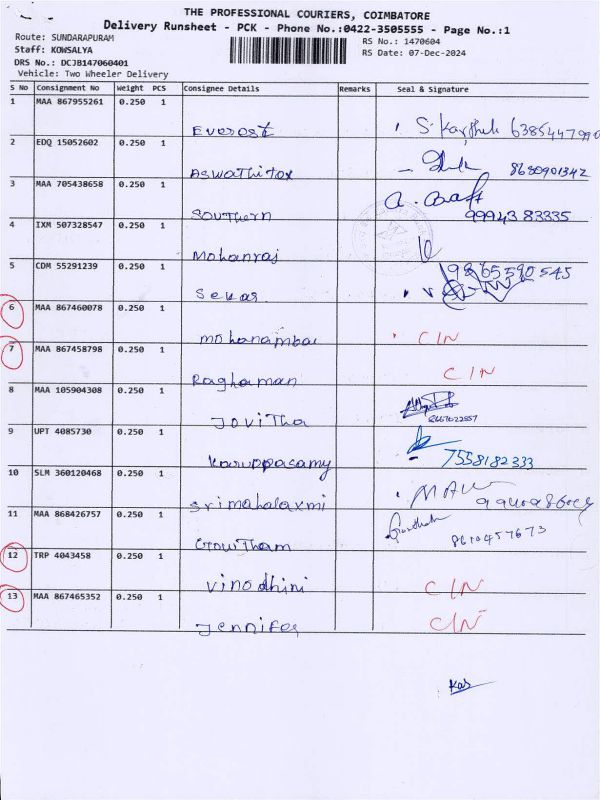 THE PROFESSIONAL COURIERS, COIMBATORE
Delivery Runsheet - PCK - Phone No.:0422-3505555 - Page No.:1
Route: SUNDARAPURAM
RS No.: 1470604
Staff: KOWSALYA
RS Date: 07-Dec-2024
DRS No.: DCJB147060401
Vehicle: Two Wheeler Delivery
S No Consignment No Weight PCS Consignee Details Remarks Seal & Signature
1 MAA 867955261 0.250 1
Everest S. Karthik
2 EDQ 15052602 0.250 1
Aswathitex 8680901342
3 MAA 705438658 0.250 1
Southern 9994383335
4 IXM 507328547 0.250 1
Mohanraj
5 CDM 55291239 0.250 1 9865590545
Sekar
6 MAA 867460078 0.250 1
Mohanambal C/N
7 MAA 867458798 0.250 1
Raghaman C/N
8 MAA 105904308 0.250 1
Jovitha
9 UPT 4085730 0.250 1
Karuppasamy 7558182333
10 SLM 360120468 0.250 1
Srimahalaxmi
11 MAA 868426757 0.250 1
Gowtham 8610457673
12 TRP 4043458 0.250 1
Vinodhini C/N
13 MAA 867465352 0.250 1
Jennifer C/N